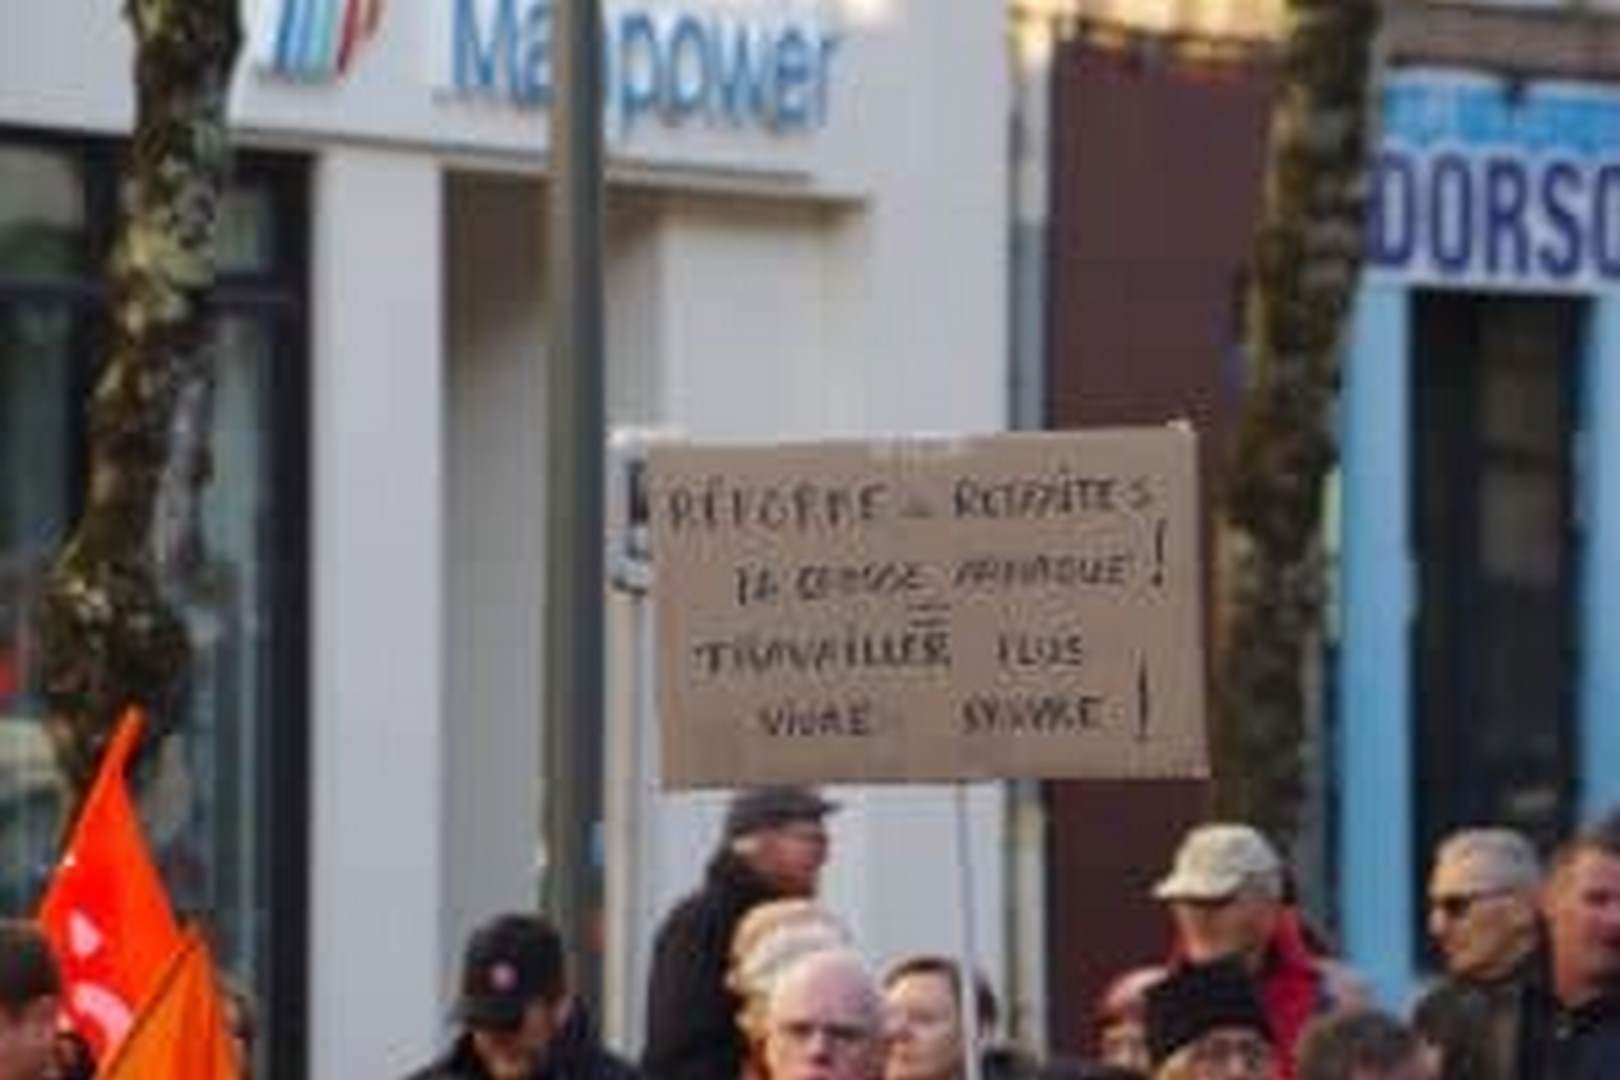 Manpower
DORSO
RÉFORME = RETRAITES
LA GROSSE ARNAQUE !
=
TRAVAILLER PLUS
VIVRE !